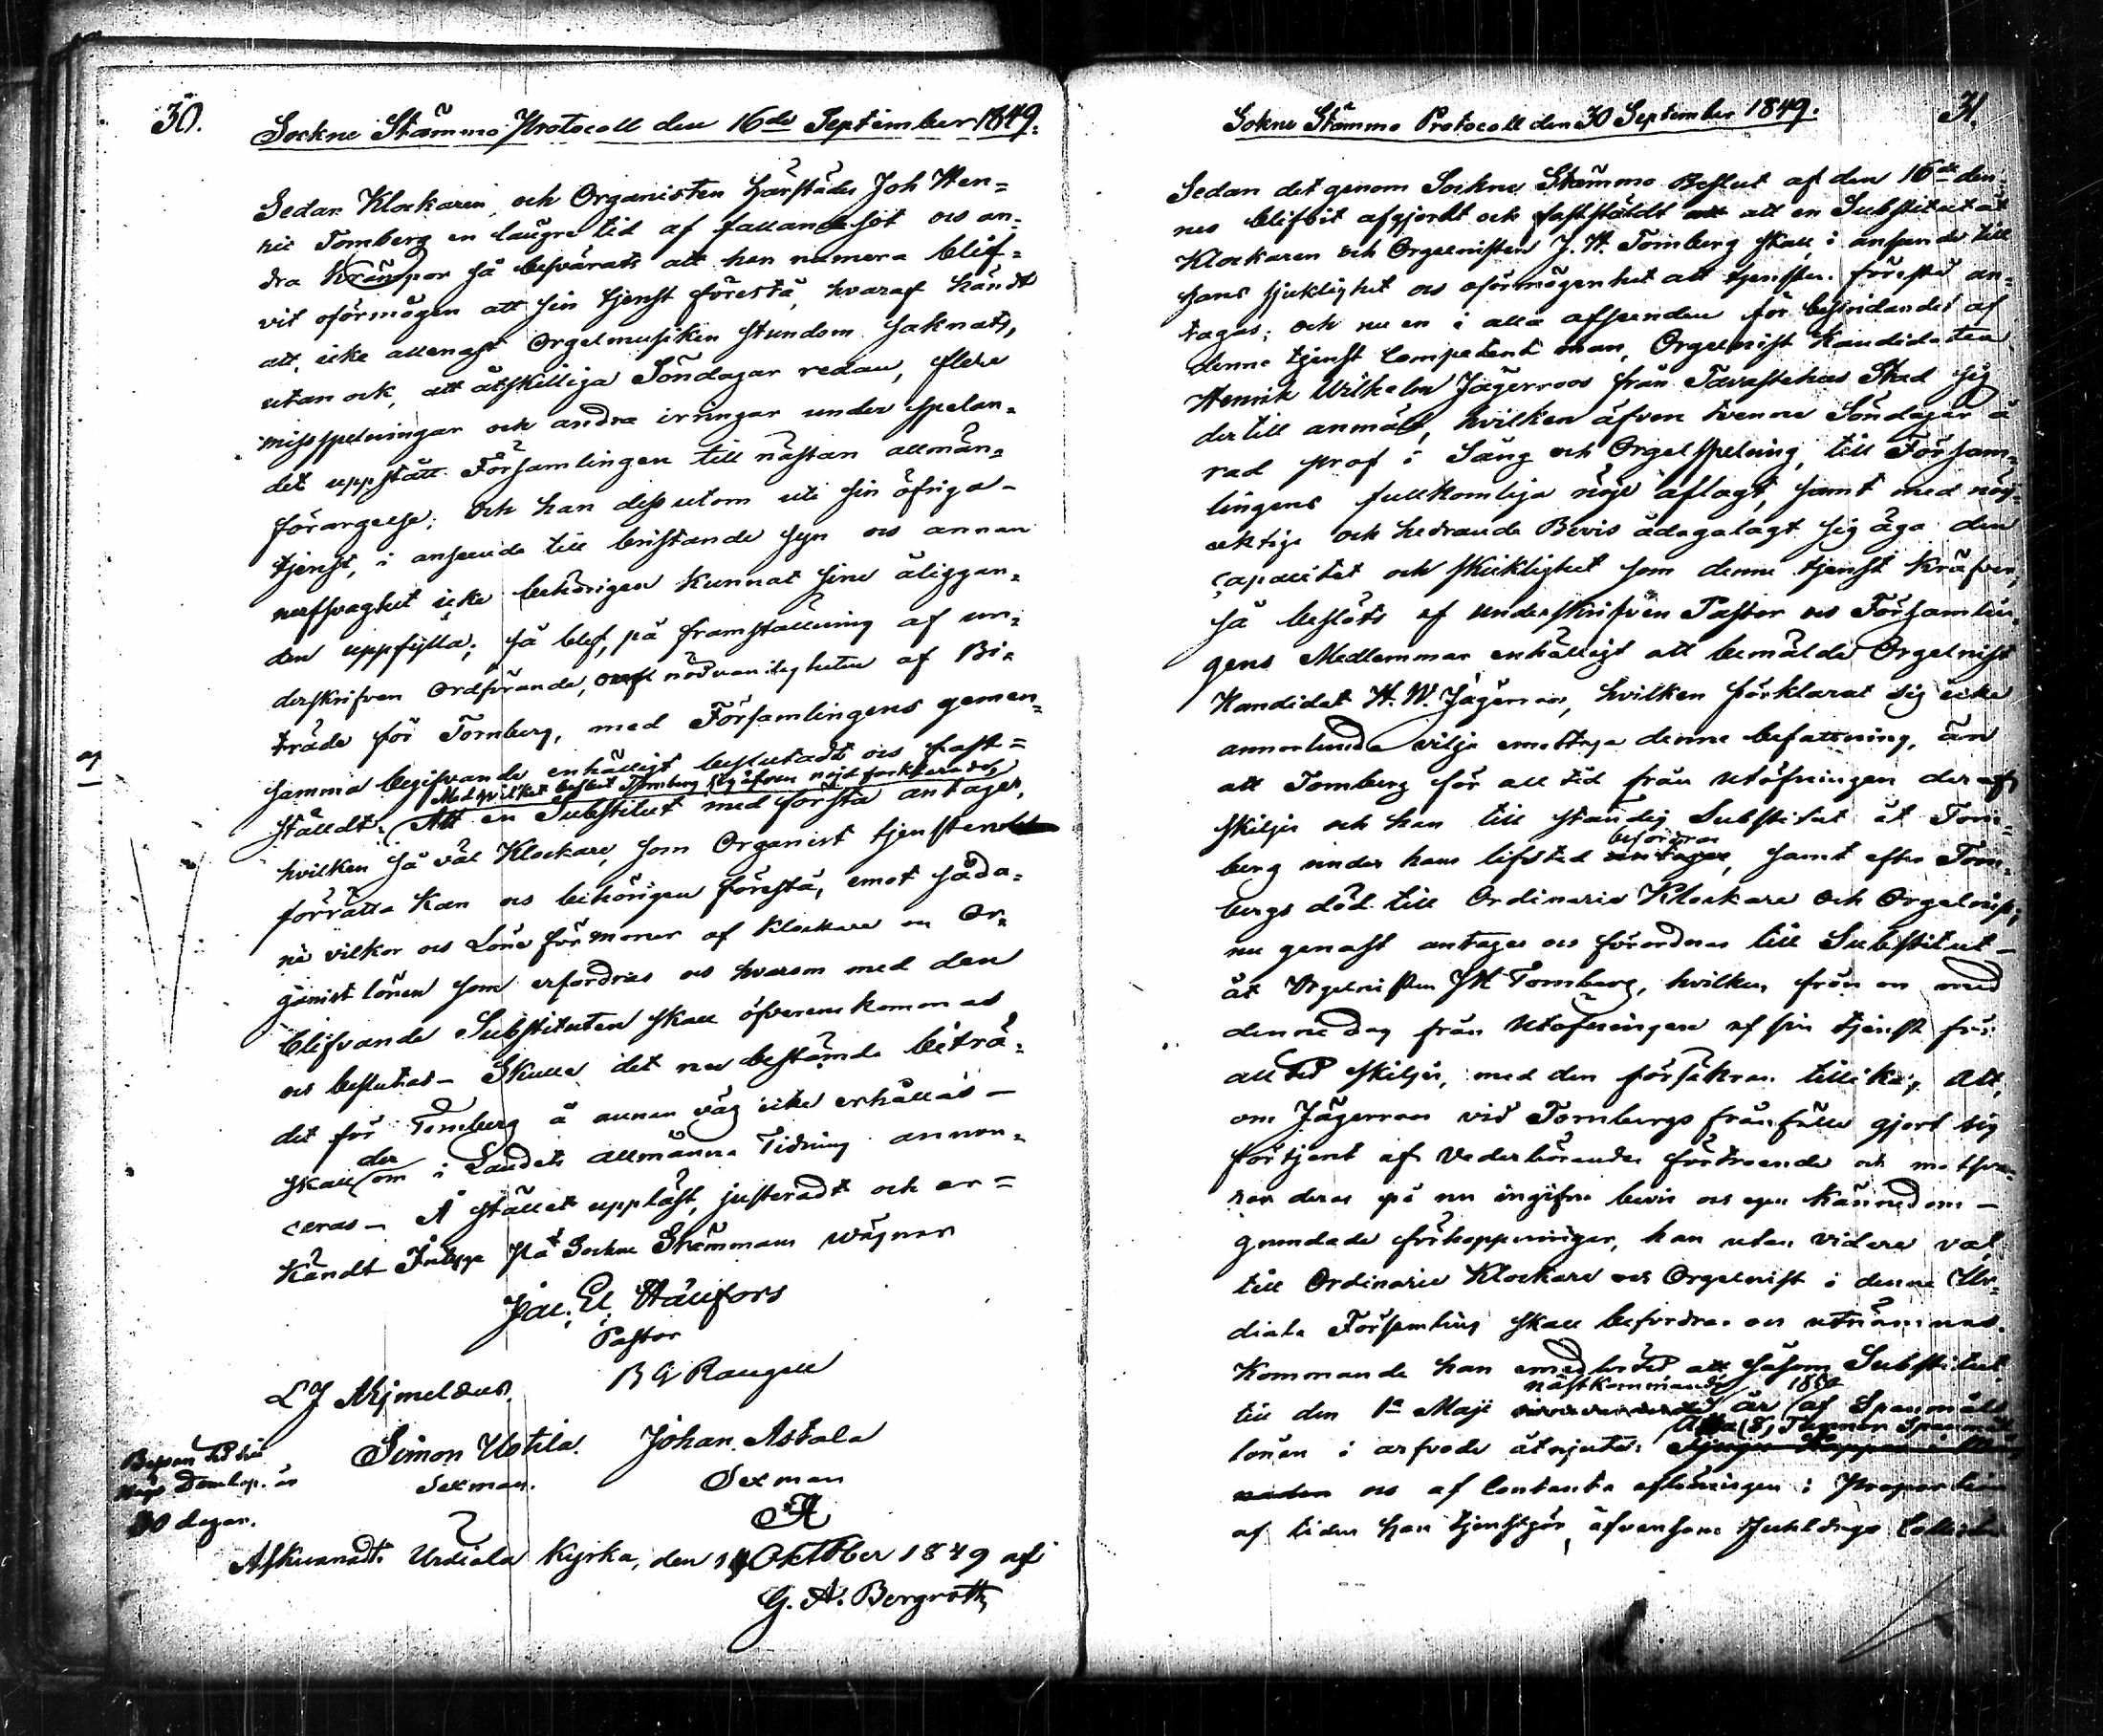 30.
Sockne Stämmo Protocoll den 16de September 1849.
Sedan Klockaren och Organisten härstädes Joh Hen=
ric Tornberg en längre tid af fallandesot och an=
dra Krämpor så besvärats att han numera blif=
vit oförmögen att sin tjenst förestå, hvaraf händt
att, icke allenast Orgelmusiken stundom saknats,
utan ock, att åtskilliga Söndagar redan, flere
misspelningar och andra irringar under spelan=
det uppstått Församlingen till nästan allmän=
förargelse; och han dessutom uti sin öfriga
tjenst, i anseende till bristande syn och annan
nerfsvaghet icke behörigen kunnat sine åliggan=
den uppfylla; så blef, på framställning af un=
derskrifven Ordförande, om nödvändigheten af Bi=
träde för Tornberg, med Församlingens gemen=
samma begifvande enhälligt beslutadt och fast=
Med hvilket beslut Tornberg sig äfven nöjd förklarade,
ställdt: Att en Substitut med första antages,
hvilken så väl Klockare, som Organist tjensten
förrätta kan och behörigen förestå, emot såda=
ne vilkor och Löne förmoner af Klockare och Or=
ganist lönen som erfordras och hvarom med den
blifvande Substituten skall öfverenskommas
och beslutas – Skulle det nu bestämda biträ=
det för Tornberg å annan väg icke erhållas –
skall derom i Landets allmänna Tidning annon=
ceras – På stället uppläst, justeradt och er=
kändt Intyga På Sockne Stämmans vägnar
Jac. El. Hällfors
Pastor
L J Mymelæus. B G Rangell
Simon Uotila. Johan Astala
Sexman. Sexman
Besvärs tid till
Höge Domkap. är
30 dagar.
Afkunnadt i Urdiala Kyrka, den 14 Oktober 1849 af
G. A. Bergroth
Sokne Stämmo Protocoll den 30 September 1849.
31.
Sedan det genom Sockne Stämmo Beslut af den 16de den=
nes blifvit afgjordt och fastställdt att en Substitut åt
Klockaren och Orgelnisten J. H. Tornberg skall, i anseende till
hans sjuklighet och oförmögenhet att tjensten förestå an=
tagas; och nu en i alla afseenden för bestridandet af
denne tjenst competent man, Orgelnist Kandidaten
Henrik Wilhelm Jägerroos från Tavastehus Stad sig
dertill anmält, hvilken äfven tvenne Söndagar å
rad prof i Sång och Orgelspelning, till Försam=
lingens fullkomliga nöje aflagt, samt med nöj=
aktige och hedrande Bevis ådagalagt sig äga den
capacitet och skicklighet som denne tjenst kräfver;
så beslöts af underskrifven Pastor och Församlin=
gens Medlemmar enhälligt att bemälde Orgelnist
Kandidat H. W. Jägerroos, hvilken förklarat sig icke
annorlunda vilja emottaga denne befattning, än
att Tornberg för all tid från utöfningen deraf
skiljes och han till ständig Substitut åt Torn=
befordras
berg under hans lifstid antages, samt efter Torn=
bergs död till Ordinarie Klockare och Orgelnist,
nu genast antages och förordnas till Substitut –
åt Orgelnisten JH Tornberg, hvilken från och med
denne dag från utöfningen af sin tjenst för
all tid skiljes, med den försäkran tillika, att,
om Jägerroos vid Tornbergs frånfälle gjort sig
förtjent af Vederbörandes förtroende och motsva=
rar deras på nu ingifne bevis och egen kännedom –
grundade förhoppningar, han utan vidare val,
till Ordinarie Klockare och Orgelnist i denne Ur=
diala Församling skall befordras och utnämnas.
Kommande han emedlertid att såsom Substitut
nästkommande 1850
till den 1a Maji år af Spanmåls
Åtta (8) Tunnor Spanmål
lönen i arfvode åtnjuta:
och af contanta aflöningen i Proportion
af tiden han tjenstgör, äfvensom